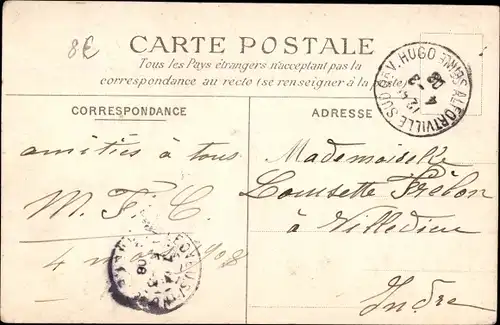 8€
CARTE POSTALE
Tous les Pays étrangers n'acceptant pas la
correspondance au recto (se renseigner à la poste)
ALFORTVILLE-SUD R. V. HUGO SEINE
12 45
4 - 3
08
CORRESPONDANCE
ADRESSE
amitiés à tous
M. F. C.
4 mars 1908
Mademoiselle
Louisette Trèbon
à Villedieu
Indre